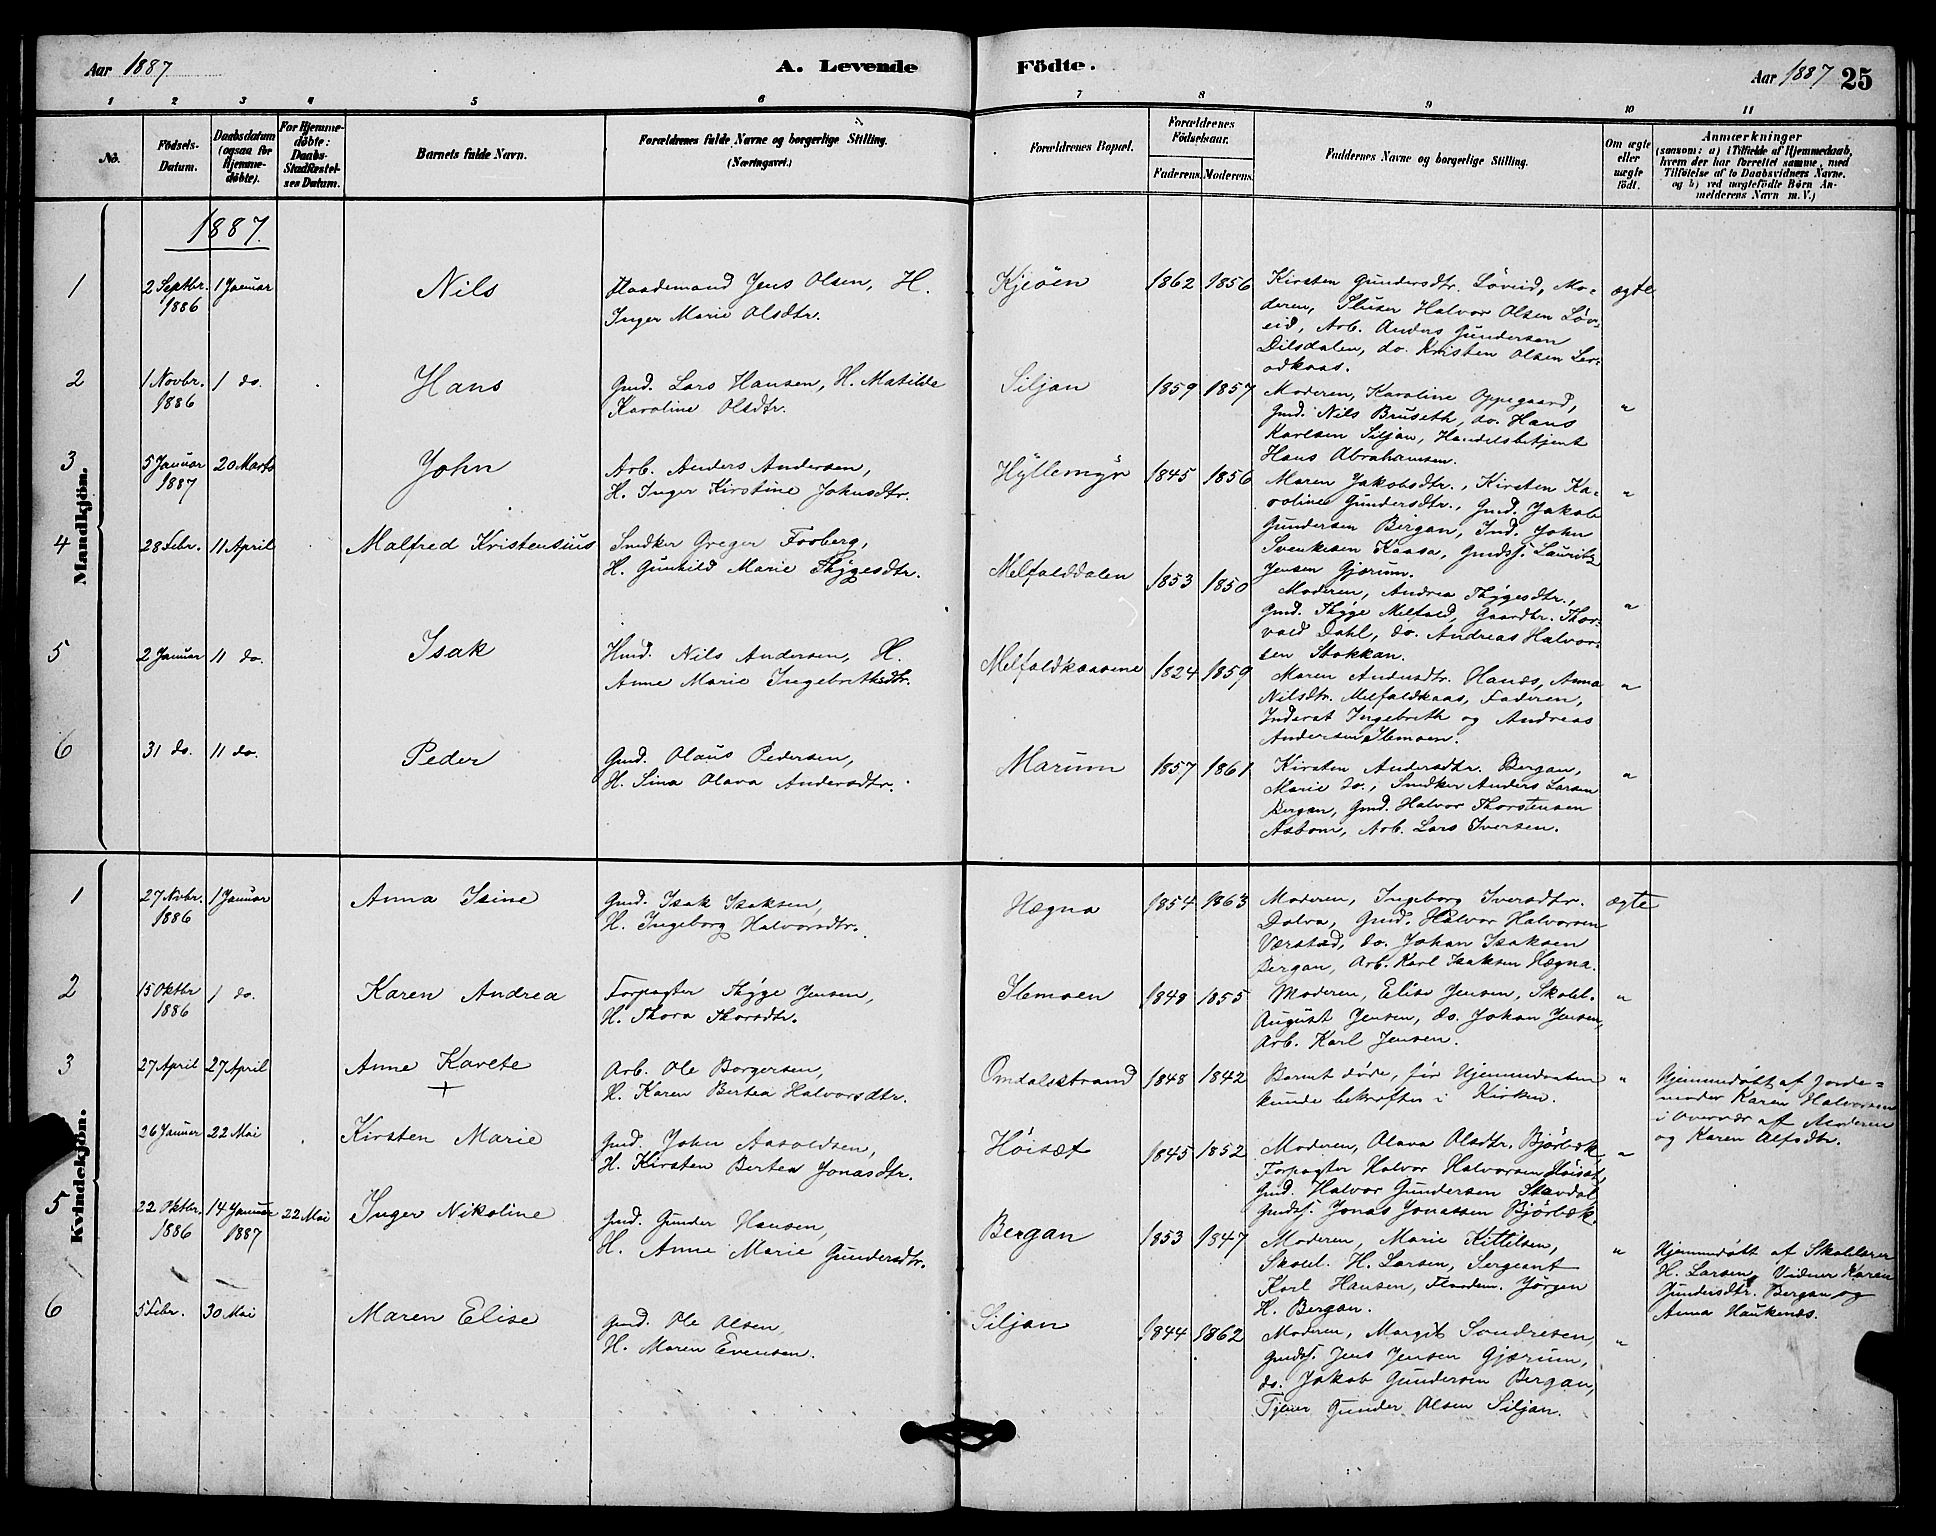 Aar 1887
A. Levende Födte.
Aar 1887 25
1 2 3 4 5 6 7 8 9 10 11
No.
Födsels-Datum.
Daabsdatum (ogsaa for Hjemme-døbte).
For Hjemme-døbte: Daabs-Stadfæstel-ses Datum.
Barnets fulde Navn.
Forældrenes fulde Navne og borgerlige Stilling.
(Næringsvei.)
Forældrenes Bopæl.
Forældrenes Födselsaar.
Faderens. Moderens.
Faddernes Navne og borgerlige Stilling.
Om ægte eller uægte födt.
Anmærkninger
(saasom: a) i Tilfælde af Hjemmedaab, hvem der har forrettet samme, med Tilföielse af to Daabsvidners Navne. og b) ved uægtefödte Börn An-melderens Navn m. V.)
Mandkjön.
1887.
1 2 Septbr. 1886 1 Januar Nils
Flaademand Jens Olsen, H.
Inger Marie Olsdtr.
Kjeöen 1862 1856
Kirsten Gundersdtr. Löveid, Mo-
deren, Sluser Halvor Olsen Löv-
eid, Arb. Anders Gundersen
Dilsdalen, do. Kristen Olsen
ægte
2 1 Novbr. 1886 1 do. Hans
Gmd. Lars Hansen, H. Matilde
Karoline Olsdtr.
Siljan 1859 1857
Moderen, Karoline Oppegaard,
Gmd. Nils Bruseth, do. Hans
Karlsen Siljan, Handelsbetjent
Hans Abrahamsen.
"
3 5 Januar 1887 20 Marts John
Arb. Anders Andersen,
H. Inger Kirstine Johnsdtr.
Hyllemyr 1845 1856
Maren Jakobsdtr., Kirsten Ka-
roline Gundersdtr., Gmd. Jakob
Gundersen Bergan, Ind. John
Svenkesen Kaasa, Gmdss. Lauritz
Jensen Gjærum.
"
4 28 Febr. 11 April Malfred Kristensius
Snedker Greger Fooberg,
H. Gunhild Marie Thygesdtr.
Melfalddalen 1853 1850
Moderen, Andrea Thygesdtr.,
Gmd. Thyge Melfald, Gaardbr. Thor-
vald Dahl, do. Andreas Halvor-
sen Stokkan.
"
5 2 Januar 11 do. Isak
Hmd. Nils Andersen, H.
Anne Marie Ingebrethsdtr.
Melfaldkaasene 1824 1859
Maren Andersdtr. Hanæs, Anna
Nilsdtr. Melfaldkaas, Faderen,
Inderst Ingebreth og Andreas
Andersen Ilemoen.
"
6 31 do. 11 do. Peder
Gmd. Olaus Pedersen,
H. Sina Olava Andersdtr.
Marum 1857 1861
Kirsten Andersdtr. Bergan,
Marie do., Snedker Anders Larsen
Bergan, Gmd. Halvor Thorstensen
Aasbom, Arb. Lars Iversen.
"
Kvindekjön.
1 27 Novbr. 1886 1 Januar Anna Isine
Gmd. Isak Isaksen,
H. Ingeborg Halvorsdtr.
Hægna 1854 1863
Moderen, Ingeborg Iversdtr.
Dolva, Gmd. Halvor Halvorsen
Værstad, do. Johan Isaksen
Bergan, Arb. Karl Isaksen Hægna.
ægte
2 15 Oktbr 1886 1 do. Karen Andrea
Forpagter Thyge Jensen,
H. Thora Thorsdtr.
Ilemoen 1848 1855
Moderen, Elise Jensen, Skolel.
August Jensen, do. Johan Jensen,
Arb. Karl Jensen.
"
3 27 April 27 April Anne Karete
+
Arb. Ole Borgersen,
H. Karen Bertea Halvorsdtr.
Omdalsstrand 1848 1842
Barnet døde, før Hjemmedaaben
kunde bekræftes i Kirken.
"
Hjemmedøbt af Jorde-
moder Karen Halvorsen
i Overvær af Moderen
og Karen Alfsdtr.
26 Januar 22 Mai Kirsten Marie
Gmd. John Aasoldsen,
H. Kirsten Bertea Jonasdtr.
Höisæt 1845 1852
Moderen, Olava Olsdtr. Bjørbæk,
Forpagter Halvor Halvorsen Höisæt,
Gmd. Halvor Gundersen Stavdal
Gmdss. Jonas Jonassen Bjørbæk.
"
5 22 Oktbr. 1886 14 Januar 1887 22 Mai Inger Nikoline
Gmd. Gunder Hansen,
H. Anne Marie Gundersdtr.
Bergan 1853 1847
Moderen, Marie Kittilsen,
Skolel. H. Larsen, Sergeant
Karl Hansen, Flaadem. Jörgen
H. Bergan.
"
Hjemmedøbt af Skolelærer
H. Larsen, Vidner Karen
Gundersdtr. Bergan og
Anna Haukenæs.
6 5 Febr. 30 Mai Maren Elise
Gmd. Ole Olsen,
H. Maren Evensen.
Siljan 1844 1862
Moderen, Margit Sondresen,
Gmdss. Jens Jensen Gjærum,
do. Jakob Gundersen Bergan,
Tjener Gunder Olsen Siljan.
"